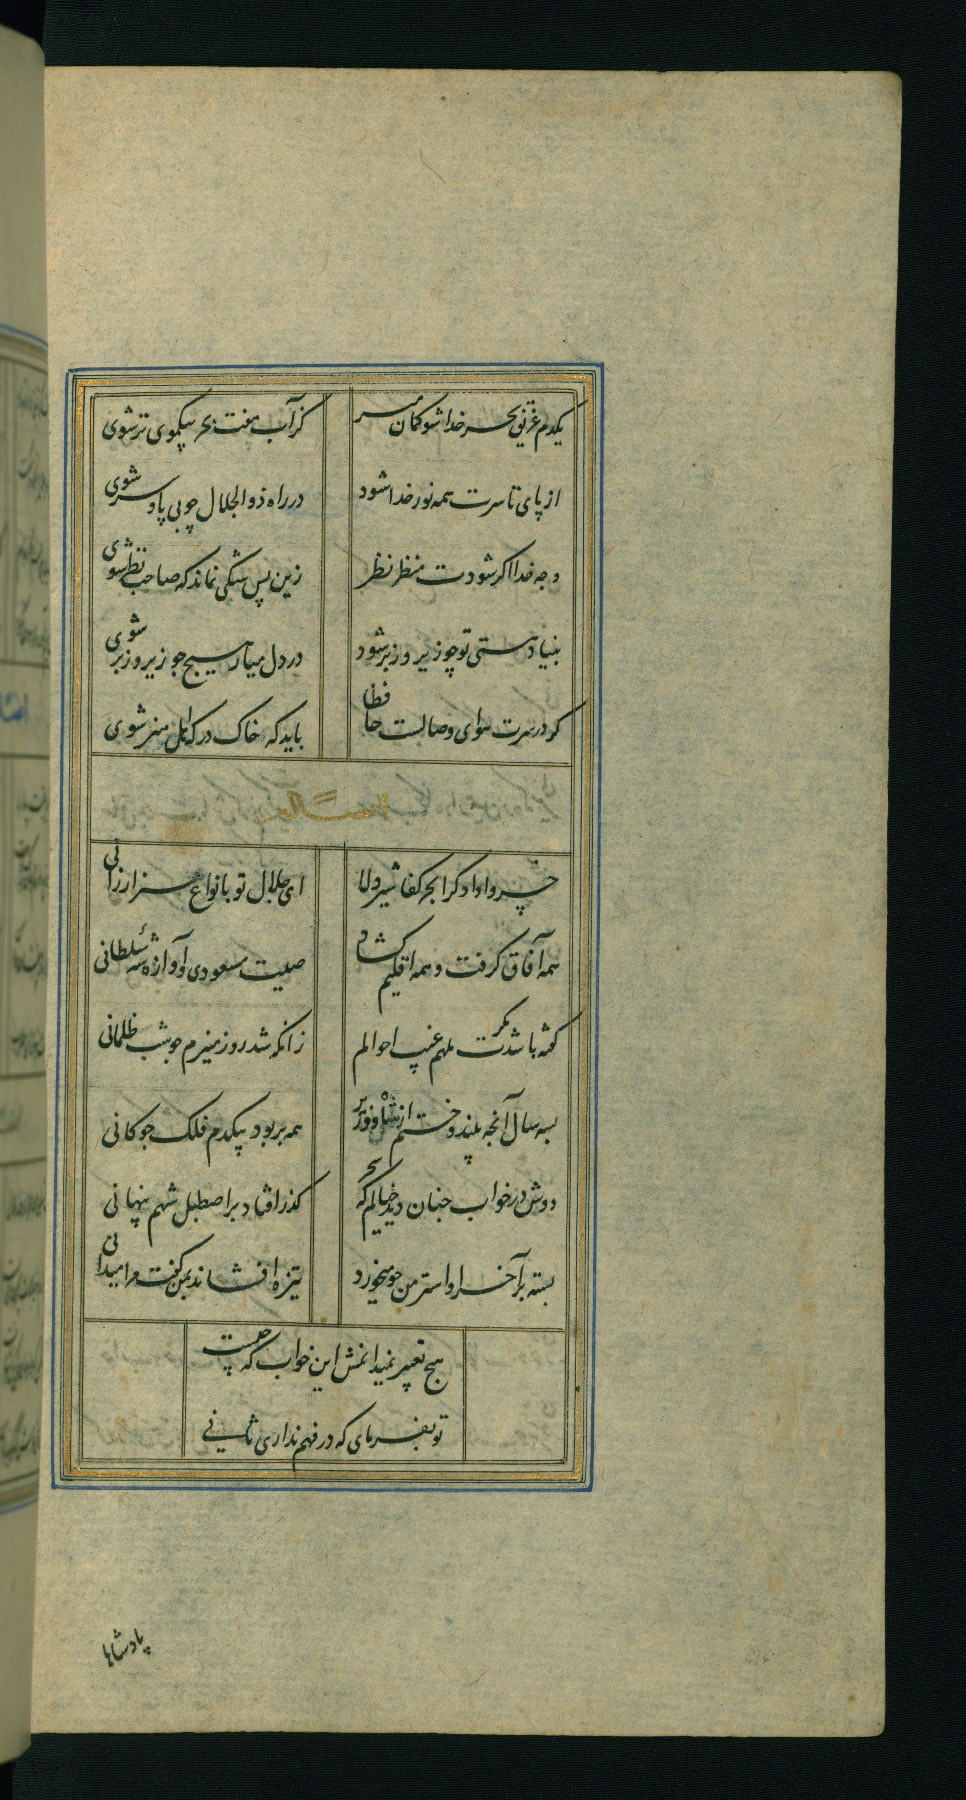 یکدم غریق بحر خدا شو گمان مبر
کز آب هفت بحر بیکموی تر شوی
از پای تا سرت همه نور خدا شود
در راه ذوالجلال چو بی پا و سر شوی
وجه خدا اگر شودت منظر نظر
زین پس شکی نماند که صاحب نظر شوی
بنیاد هستی تو چو زیر و زبر شود
در دل میار هیچ جو زیر و زبر شوی
گر در سرت هوای وصالست حافظا
باید که خاک درگه اهل هنر شوی
خسروا دادگرا بحر کفا شیردلا
ای جلال تو بانواع هنر ارزانی
همه آفاق گرفت و همه اقلیم گشاد
صیت مسعودی و آوازه شه سلطانی
گفته باشد مگرت ملهم غیب احوالم
زانکه شد روز منیرم چو شب ظلمانی
بسه سال آنچه بیندوختم از شاه و وزیر
همه بربود بیکدم فلک چوگانی
دوش در خواب چنان دید خیالم که سحر
گذر افتاد بر اصطبل شهم پنهانی
بسته بر آخر او استر من جو میخورد
تیزه افشاند بمن گفت مرا میدانی
هیچ تعبیر نمیدانمش این خواب که چیست
تو بفرمای که در فهم نداری ثانی
پادشاها